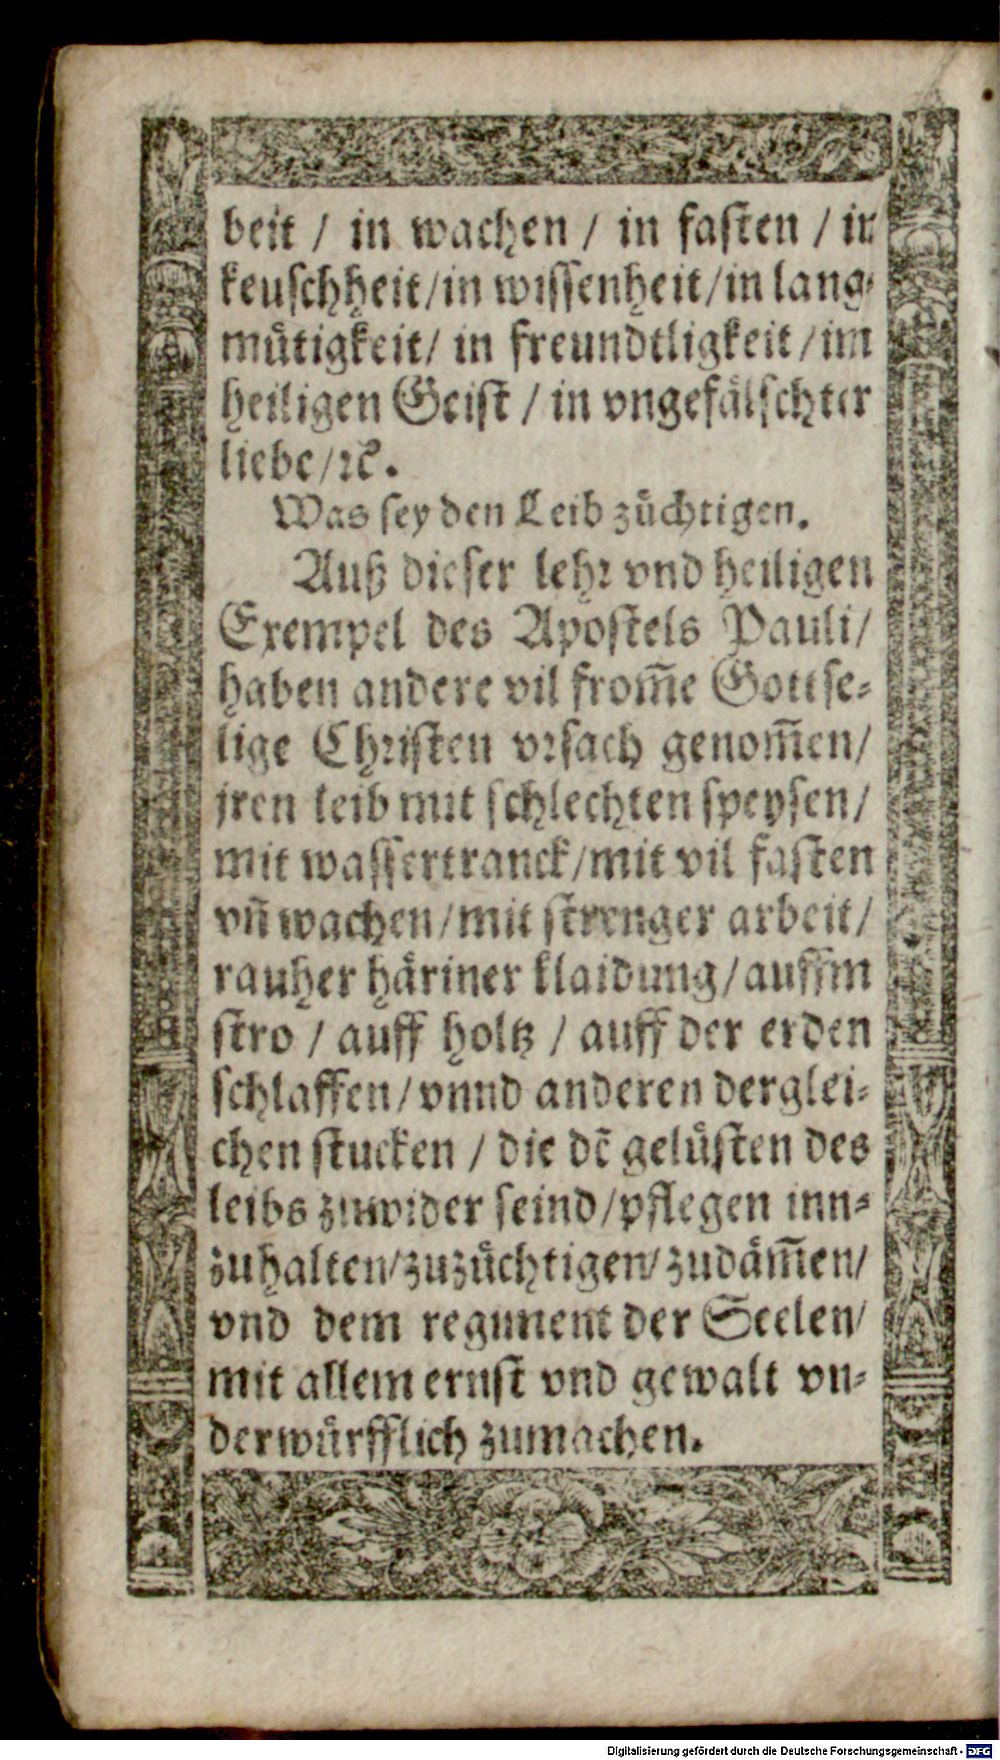 beit / in wachen / in fasten / in
keuschheit/in wissenheit/in lang-
muͤtigkeit/ in freundtligkeit/im
heiligen Geist / in vngefaͤlschter
liebe/ꝛc̃.
Was sey den Leib zuͤchtigen.
Auß dieser lehꝛ vnd heiligen
Exempel des Apostels Pauli/
haben andere vil from̃e Gottse-
lige Chꝛisten vꝛsach genom̃en/
jren leib mit schlechten speysen/
mit wassertranck/mit vil fasten
vñ wachen/mit strenger arbeit/
rauher haͤriner klaidung/auffm
stro / auff holtz / auff der erden
schlaffen/vnnd anderen derglei-
chen stucken / die dẽ geluͤsten des
leibs zuwider seind/pflegen inn-
zuhalten/zuzuͤchtigen/zudaͤm̃en/
vnd dem regiment der Seelen/
mit allem ernst vnd gewalt vn-
derwuͤrfflich zumachen.
Digitalisierung gefördert durch die Deutsche Forschungsgemeinschaft - DFG